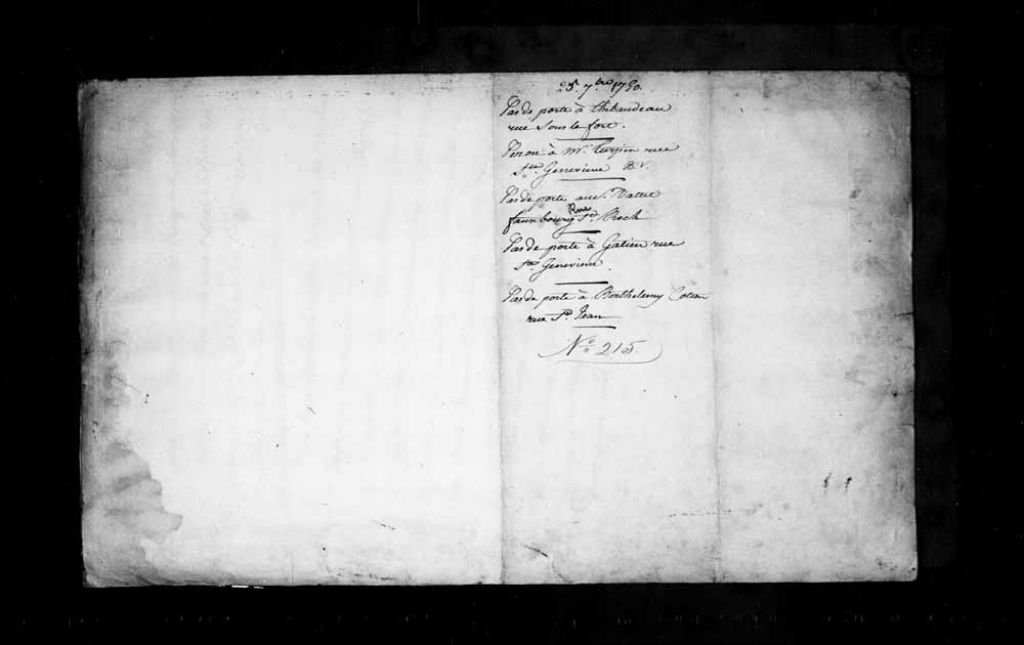 25 7bre 1780.
Pas de porte à Thibaudeau
rue Sous le fort.
Peron à Mr. Turpin rue
Ste. Genevieve B.V.
Pas de porte aux
faux bourg Rue St. Roch
Pas de porte à Gatien rue
Ste Genevieve.
Pas de porte à Barthelemy Coton
rue St. Jean
No. 215.